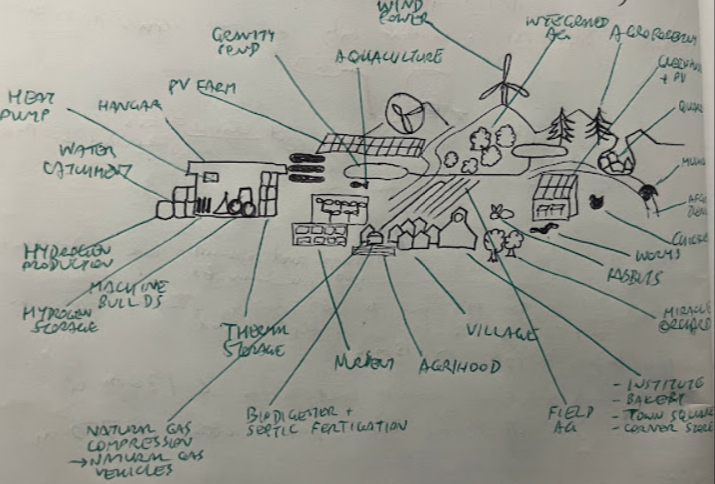 WIND
POWER
INTEGRATED
AG
GRAVITY
AQUACULTURE
PV FARM
HEAT
PUMP
HANGAR
+ PV
WATER
CATCHMENT
HYDROGEN
PRODUCTION
MACHINE
BUILDS
HYDROGEN
STORAGE
WORMS
RABBITS
MIRACLE
ORCHARD
THERM
STORAGE
VILLAGE
AGRIHOOD
- INSTITUTE
- BAKERY
- TOWN SQUARE
- CORNER STORE
FIELD
AG
BIODIGESTER +
SEPTIC FERTIGATION
NATURAL GAS
COMPRESSION
→ NATURAL GAS
VEHICLES